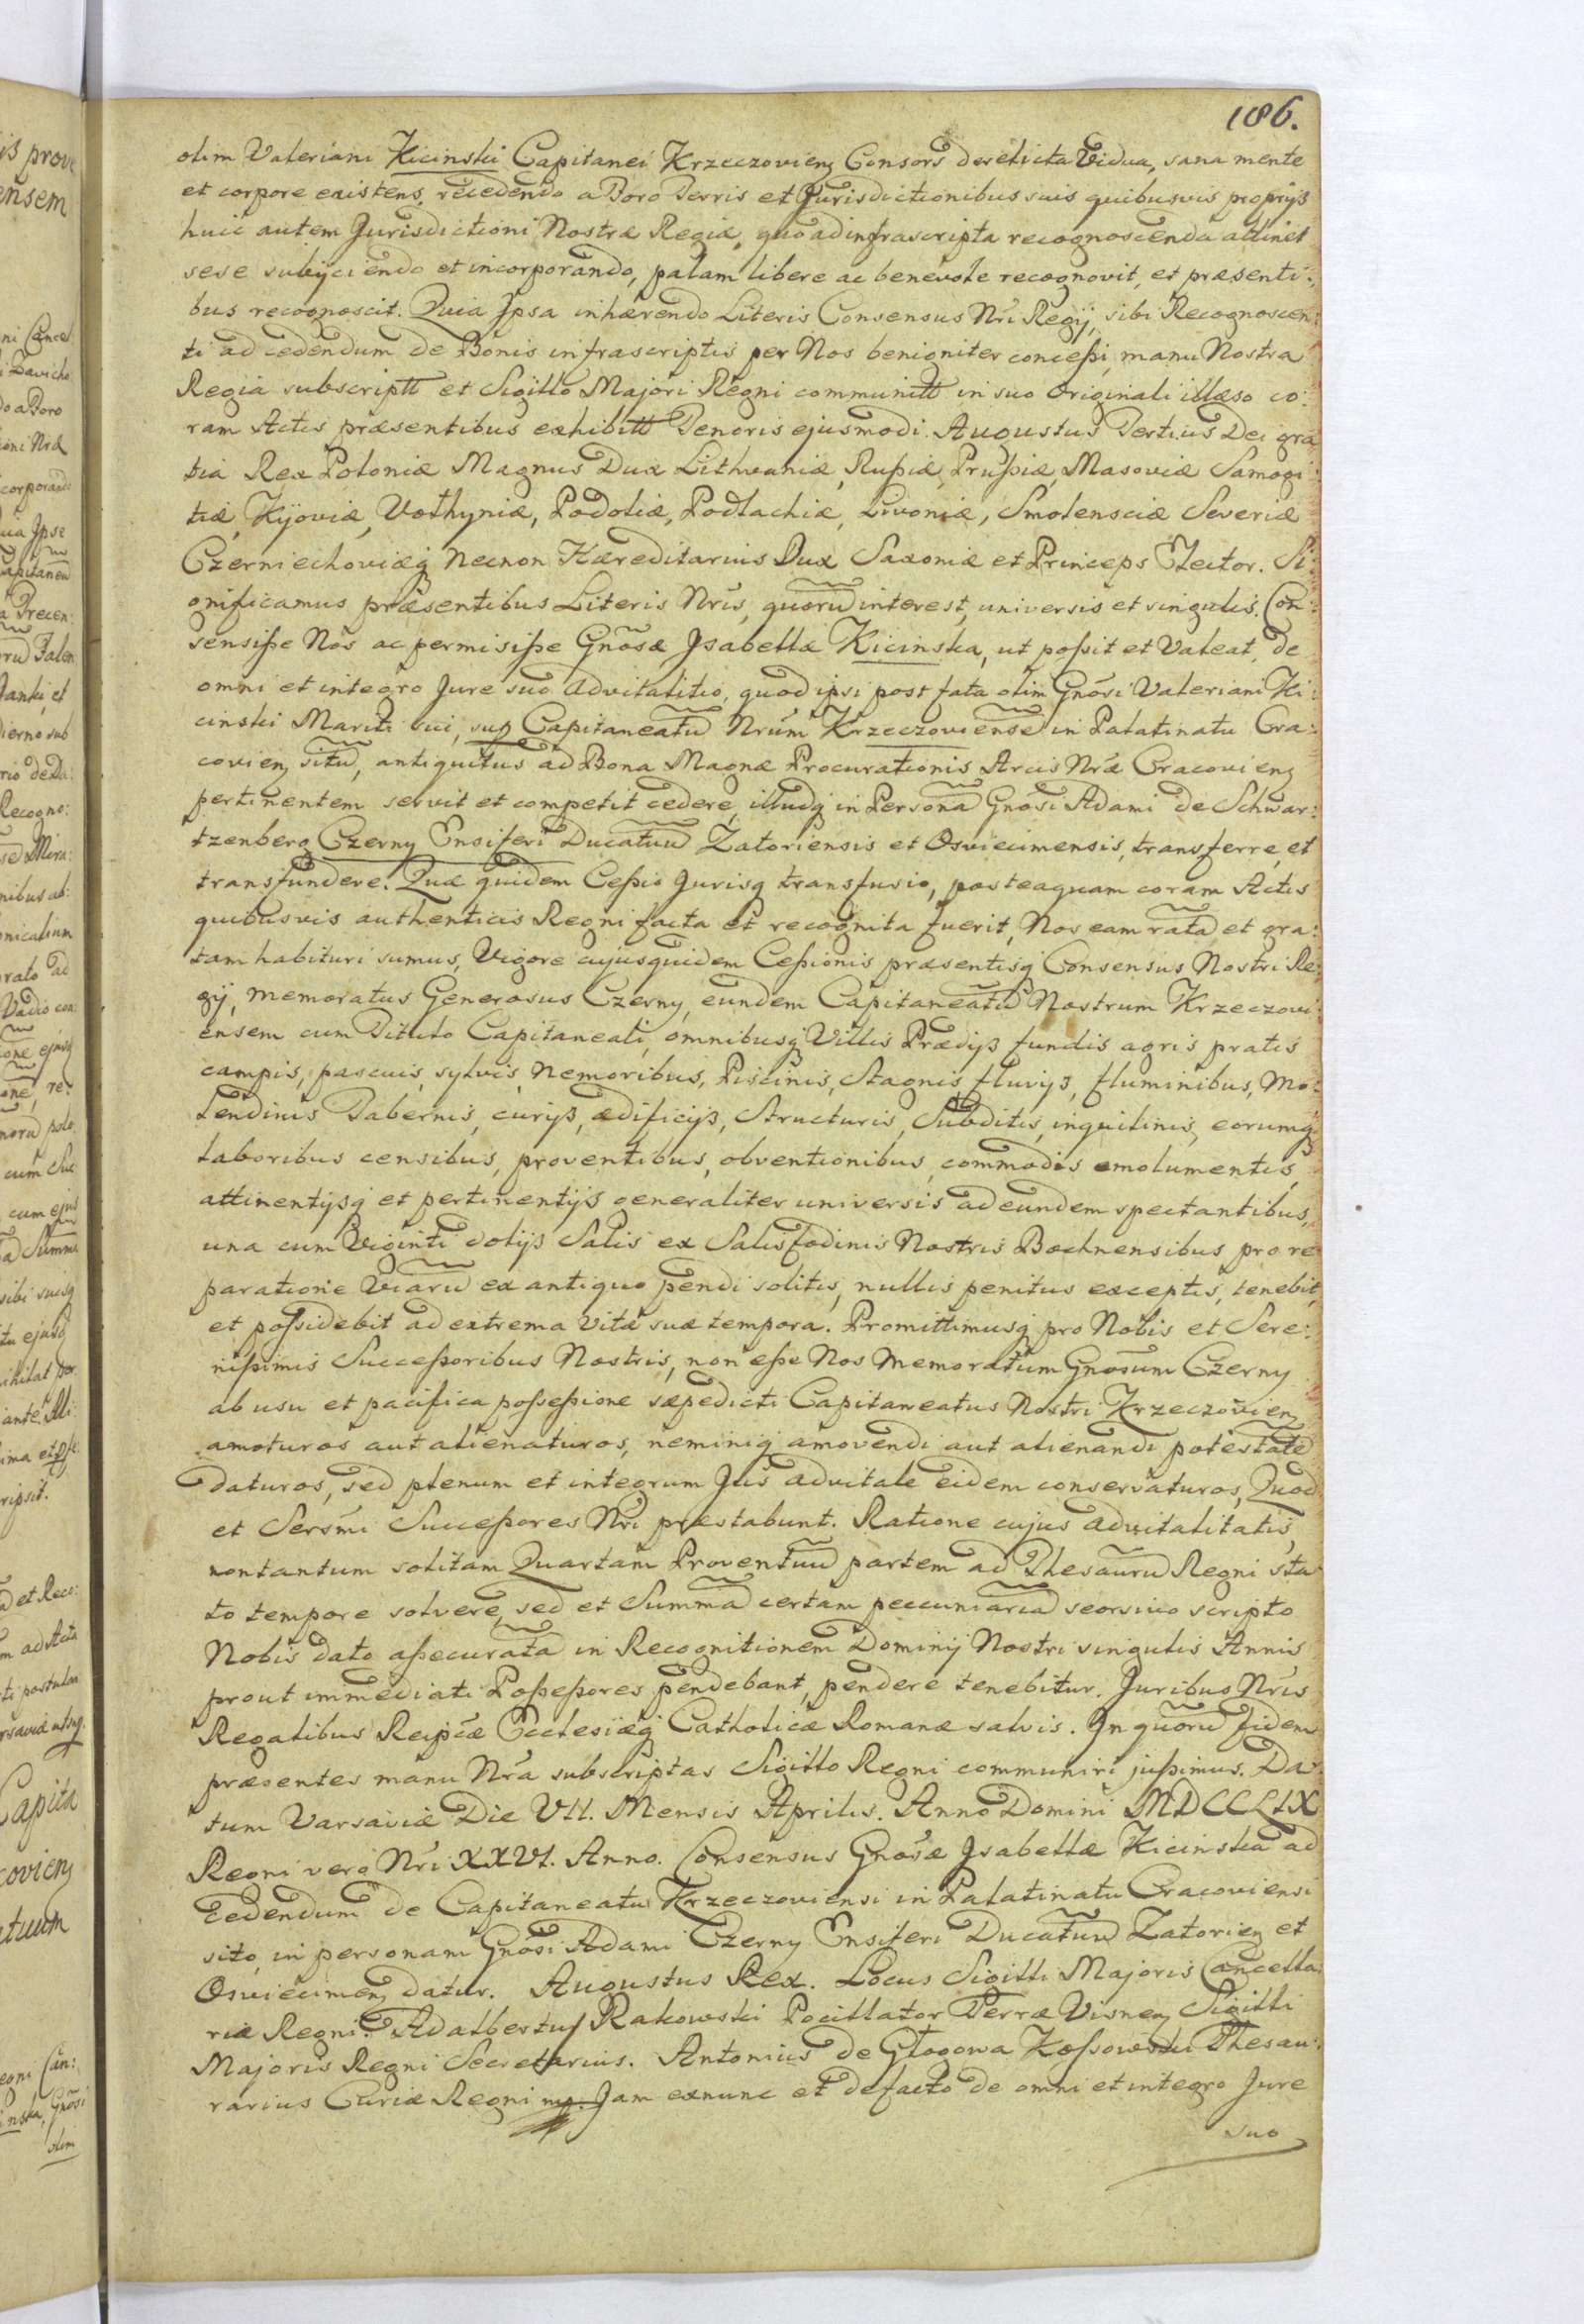 186.
olim Valeriani Kicinski Capitanei Krzeczovien̄ Consors derelicta Vidua, sana mente
et corpore existens, recedendo a Foro Terris et Jurisdictionibus suis quibusvis proprijs
huic autem Jurisdictioni Nostræ Regiæ, quo ad infrascripta recognoscenda attinet
sese subijciendo et incorporando, palam libere ac benevole recognovit, et præsenti:
bus recognoscit. Quia Ipsa inhærendo Literis Consensus Nr̃i Regij, sibi Recognoscen:
ti ad cedendum de Bonis infrascriptis per Nos benigniter conceßi, manu Nostra
Regia subscriptt et Sigillo Majori Regni communitt in suo Originali illæso co:
ram Actis præsentibus exhibitt Tenoris ejusmodi. Augustus Tertius Dei gra
tia Rex Poloniæ Magnus Dux Lithvaniæ, Rußiæ, Prußiæ, Masoviæ Samogi
tiæ, Kÿoviæ, Volhyniæ, Podoliæ, Podlachiæ, Livoniæ, Smolensciæ Severiæ
Czerniechoviæq̃ Necnon Hæreditarius Dux Saxoniæ et Princeps Elector. Si:
gnificamus præsentibus Literis Nr̃is, quorũ interest, universis et singulis. Con:
sensiße Nos ac permisiße Gñosæ Isabellæ Kicinska, ut poßit et Valeat, de
omni et integro Jure suo Advitalitio, quod ipsi post fata olim Gñosi Valeriani Ki:
cinski Mariti sui, sup Capitaneatũ Nrũm Krzeczoviense in Palatinatu Cra:
covien̄ sitũ, antiquitus ad Bona Magnæ Procurationis Arcis Nræ Cracovien̄
pertinentem servit et competit cedere, illudq̃ in Personã Gñosi Adami de Schwar:
tzenberg Czerny Ensiferi Ducatuũ Zatoriensis et Osviecimensis, transferre, et
transfundere. Quæ quidem Ceßio Jurisq̃ transfusio, posteaquam coram Actis
quibusvis authenticis Regni facta et recognita fuerit, Nos eam ratã et gra:
tam habituri sumus, Vigore cujusquidem Ceßionis præsentisq̃ Consensus Nostri Re:
gij, memoratus Generosus Czerny, eundem Capitaneatũ Nostrum Krzeczovi:
ensem cum Titulo Capitaneali, omnibusq̃ Villis Prædijs fundis agris pratis
campis, pascuis, sylvis, Nemoribus, Piscinis, Stagnis, fluvijs, fluminibus, Mo:
lendinis Tabernis, curijs, ædificijs, Structuris, Subditis, inquilinis, eorumq̃
laboribus censibus, proventibus, obventionibus, commodis emolumentis,
attinentijsq̃ et pertinentijs generaliter universis ad eundem spectantibus,
una cum Viginti dolijs Salis ex Salisfodinis Nostris Bochnensibus pro re
paratione Viarũ ex antiquo pendi solitis, nullis penitus exceptis, tenebit,
et poßidebit ad extrema Vitæ suæ tempora. Promittimusq̃ pro Nobis et Sere:
nißimis Succeßoribus Nostris, non eße Nos Memoratum Gñosum Czerny
ab usu et pacifica poßeßione sæpedicti Capitaneatus Nostri Krzeczovien̄
amoturos aut alienaturos, neminiq̃ amovendi aut alienandi potestatẽ
daturos, sed plenum et integrum Jus advitale eidem conservaturos, Quod
et Sersm̃i Succeßores Nr̃i præstabunt. Ratione cujus Advitalitatis,
nontantum solitam Quartam Proventuũ partem ad Thesaurũ Regni sta
to tempore solvere, sed et Summã certam peccuniariã seorsivo scripto
Nobis dato aßecuratã in Recognitionem Dominij Nostri singulis Annis
prout immediati Poßeßores pendebant, pendere tenebitur. Juribus Nr̃is
Regalibus Reip̃cæ Ecclesiæq̃ Catholicæ Romanæ salvis. In quorũ fidem
præsentes manu Nr̃a subscriptas Sigillo Regni communiri jußimus. Da
tum Varsaviæ Die VII. Mensis Aprilis. Anno Domini MDCCLIX
Regni vero Nr̃i XXVI. Anno. Consensus Gñosæ Isabellæ Kicinska ad
Cedendum de Capitaneatu Krzeczoviensi in Palatinatu Cracoviensi
sito, in personam Gñosi Adami Czerny Ensiferi Ducatuũ Zatorien̄ et
Osviecimen̄ datur. Augustus Rex. Locus Sigilli Majoris Cancella:
riæ Regni. Adalbertus Rakowski Pocillator Terræ Visnen̄ Sigilli
Majoris Regni Secretarius. Antonius de Głogowa Koßowski Thesau:
rarius Curiæ Regni mp. Jam exnunc et defacto de omni et integro Jure
suo